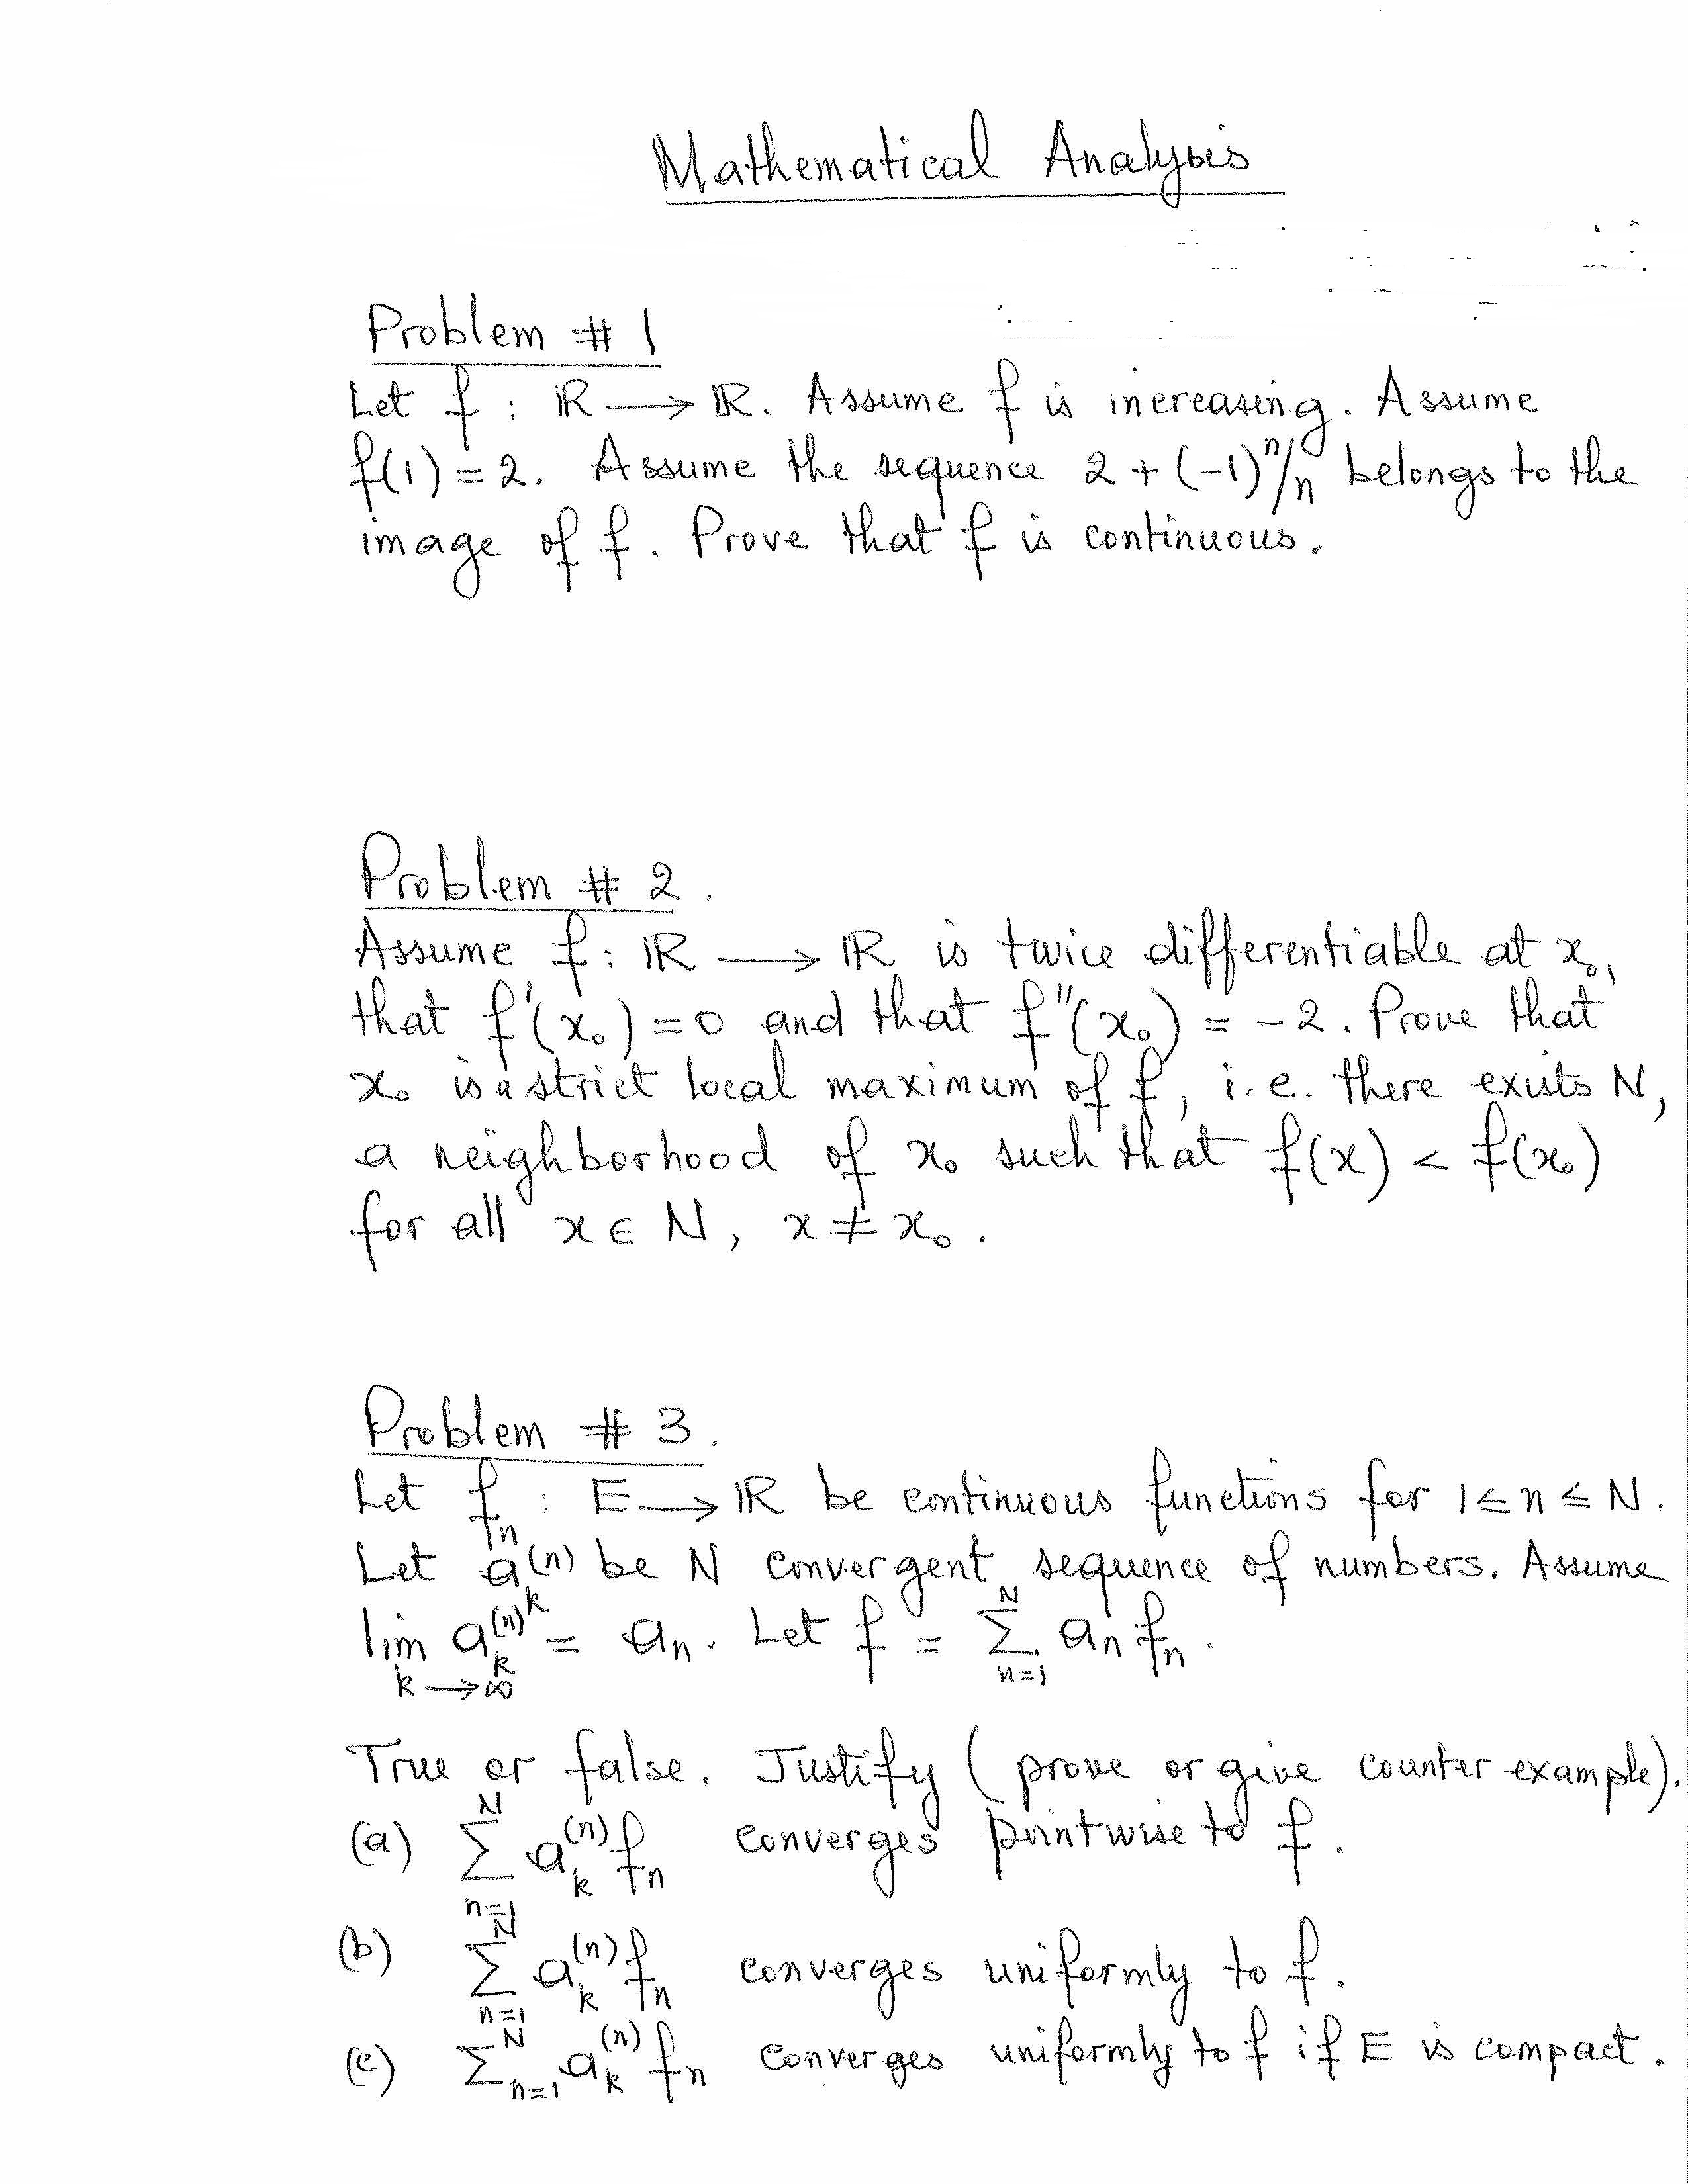 Mathematical Analysis
Problem # 1
Let f : ℝ ⟶ ℝ. Assume f is increasing. Assume
f(1) = 2. Assume the sequence 2 + (-1)ⁿ/n belongs to the
image of f. Prove that f is continuous.
Problem # 2.
Assume f : ℝ ⟶ ℝ is twice differentiable at x₀,
that f'(x₀) = 0 and that f''(x₀) = -2. Prove that
x₀ is a strict local maximum of f, i.e. there exists N,
a neighborhood of x₀ such that f(x) < f(x₀)
for all x ∈ N, x ≠ x₀.
Problem # 3.
Let fₙ : E ⟶ ℝ be continuous functions for 1 ≤ n ≤ N.
Let a_k^(n) be N convergent sequence of numbers. Assume
lim_{k→∞} a_k^(n) = aₙ. Let f = Σ_{n=1}^N aₙ fₙ.
True or false. Justify (prove or give counter-example).
(a) Σ_{n=1}^N a_k^(n) fₙ converges pointwise to f.
(b) Σ_{n=1}^N a_k^(n) fₙ converges uniformly to f.
(c) Σ_{n=1}^N a_k^(n) fₙ converges uniformly to f if E is compact.